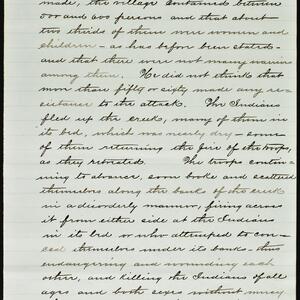 made, the village contained between
500 and 600 persons and that about
two thirds of them were women and
children - as has before been stated -
and that there were not many warriors
among them. He did not think that
more than fifty or sixty made any re-
sistance to the attack. The Indians
fled up the creek, many of them in
its bed, which was nearly dry - some
of them returning the fire of the troops,
as they retreated. The troops contin-
uing to advance, soon broke and scattered
themselves along the bank of the creek
in a disorderly manner, firing across
it from either side at the Indians
in its bed or who attempted to con-
ceal themselves under its banks - thus
endangering and wounding each
other, and killing the Indians of all
ages and both sexes without mercy